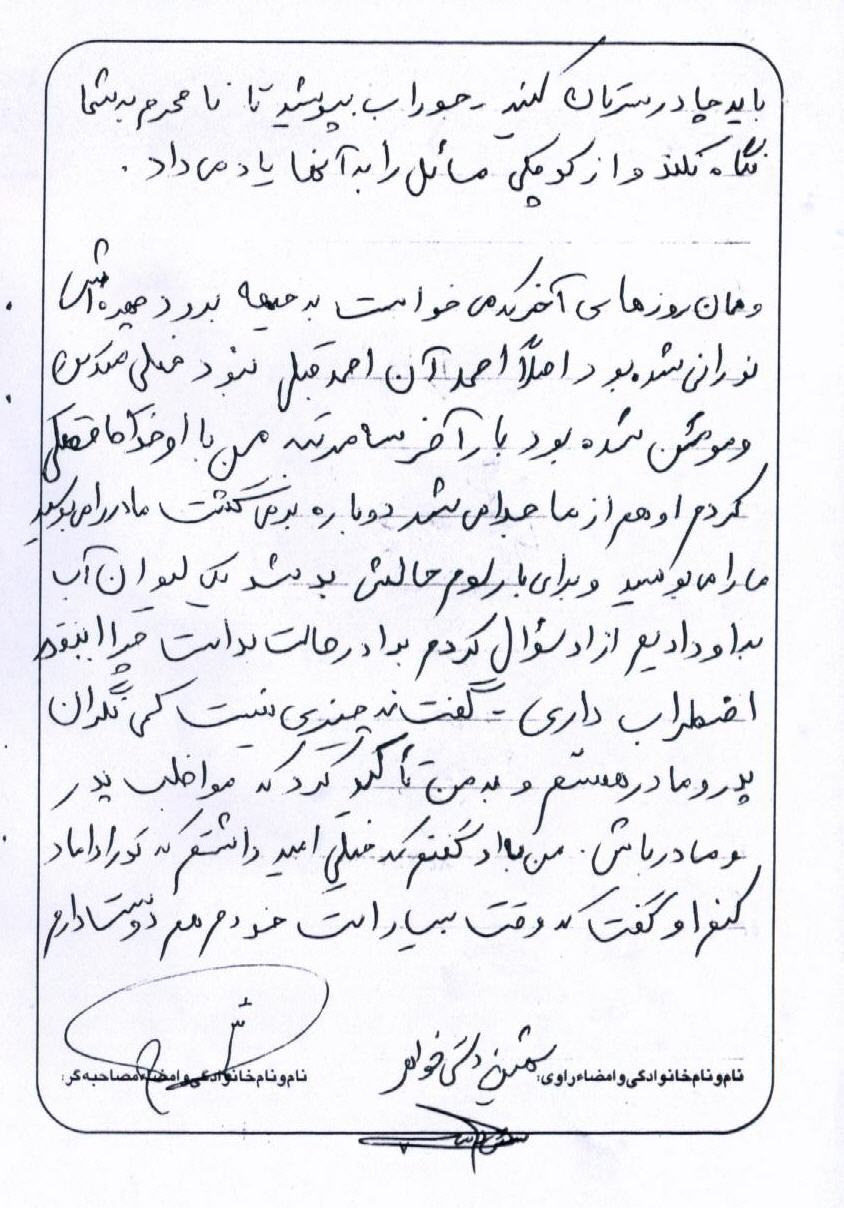 باید چادر سرتان کنید - جوراب بپوشید تا نا محرم به شما
نگاه نکند و از کوچکی مسائل را به آنها یاد می داد .
و همان روزهای آخر که می خواست به جبهه برود چهره اش
نورانی شده بود اصلاً احمد آن احمد قبلی نبود خیلی متدین
و مومن شده بود بار آخر سه مرتبه من با او خداحافظی
کردم او هم از ما جدا می شد دوباره برمی گشت مادر را می بوسید
ما را می بوسید و برای بار سوم حالش بد شد یک لیوان آب
به او دادیم از او سؤال کردم برادر حالت بد است چرا اینقدر
اضطراب داری - گفت نه چیزی نیست کمی نگران
پدر و مادر هستم و به من تأکید کرد که مواظب پدر
و مادر باش . من به او گفتم که خیلی امید داشتم که تو را داماد
کنم او گفت که وقت بسیار است خودم هم دوست دارم
نام و نام خانوادگی و امضاء راوی:
نام و نام خانوادگی و امضاء مصاحبه گر: